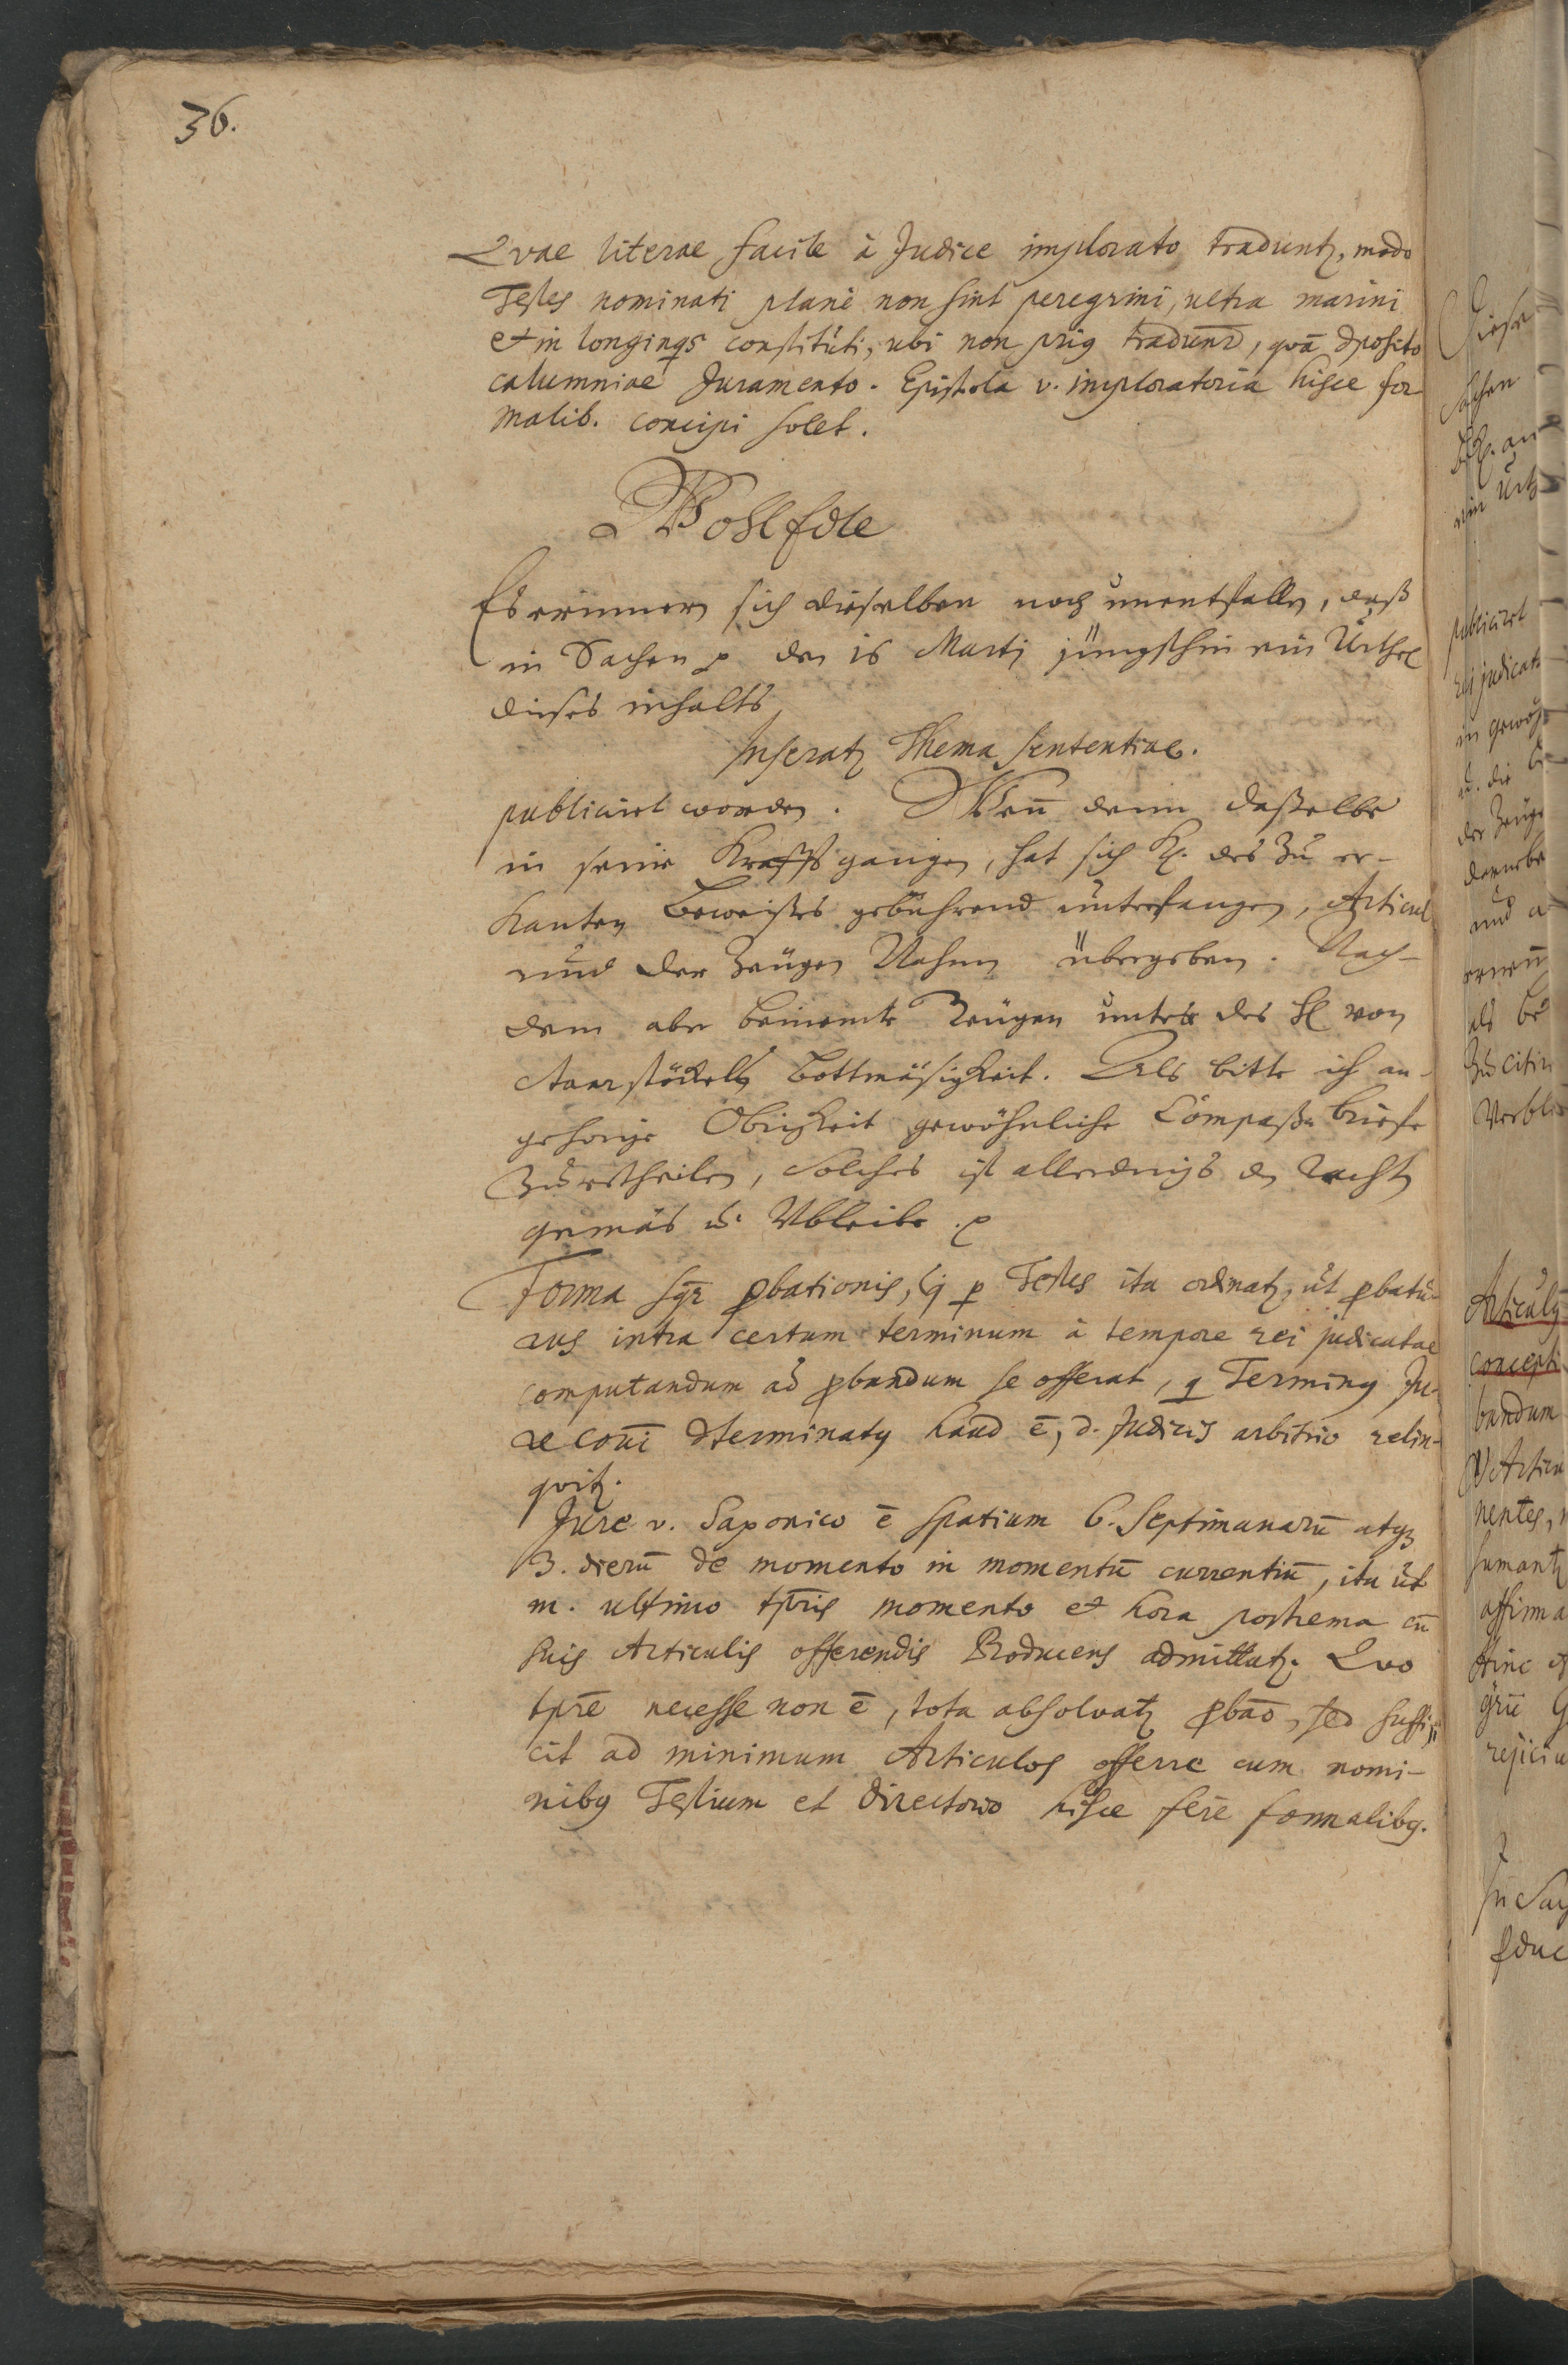 36.
Qvae literae facile à Judice implorato traduntz, modo
Testes nominati planè non sint peregrini, ultra marini
et in longinqs constituti, ubi non prig tradunr̄, qvā dposito
calumniae Juramento. Epistola v. imploratoria hisce for
malib. concipi solet.
Wohl Edle
Es erinnern sich dieselben noch unentfallen, daß
in Sachen p den 16 Martj jüngsthin ein Urthel
dieses inhalts
Inseratz thema sententiae.
publiciret worden. Wenn denn daßelbe
in seine Krafft gangen, hat sich Kl. des Zu er-
kanten Beweißes gebührend unterfangen, Articul
und der Zeugen Nahmen übergeben. Nach-
dem aber benimte Zeugen unter des H von
Bottmäsigkeit. Als bitte ich an
gehörige Obrigkeit gewöhnliche Compaß briefe
Zu ertheilen, Solches ist allerdings den Recht
gemäs u. Vbleibe p
Forma sqr̄ pbationis, q p Testes ita ordinatz, út pbatú-
rus intra certum terminum à tempore rei judicatae
computandum ad pbandum se offerat, q Terming Ju-
re coui dterminatg haud ē, d. Judicis arbitrio relin-
qvitz.
Jure v. Saxonico ē spatium 6. septimanarū atqz
3. dierū de momento in momentū currentiū, ita út
in. ultimo tpris momento et hora postrema cū
suis Articulis offerendis Producens admittatz. Qvo
tpre necesse non ē, tota absolvatz pbao, sed suffi-
cit ad minimum Articulos offerre cum nomi-
nibg Testium et directorio hisce fere formalibg.